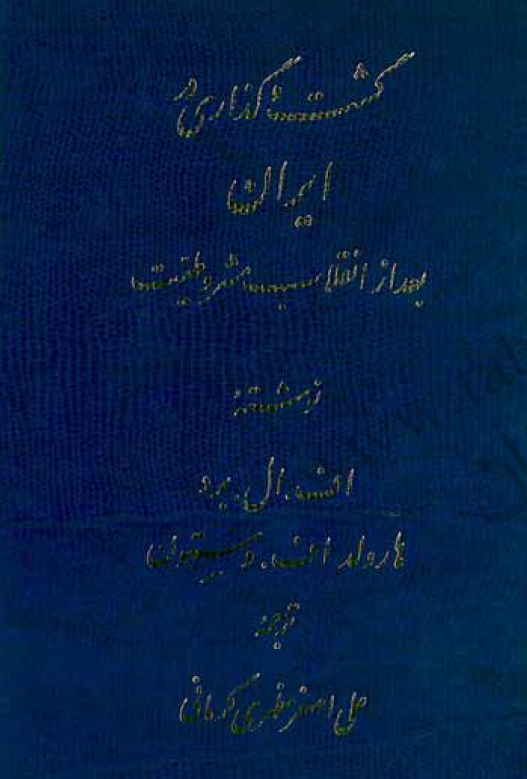 گشت و گذاری در
ایران
بعد از انقلاب مشروطیت
نوشته
اف. ال. برد
هارولد اف. وستون
ترجمه
علی اصغر مظهری کرمانی
www.tab